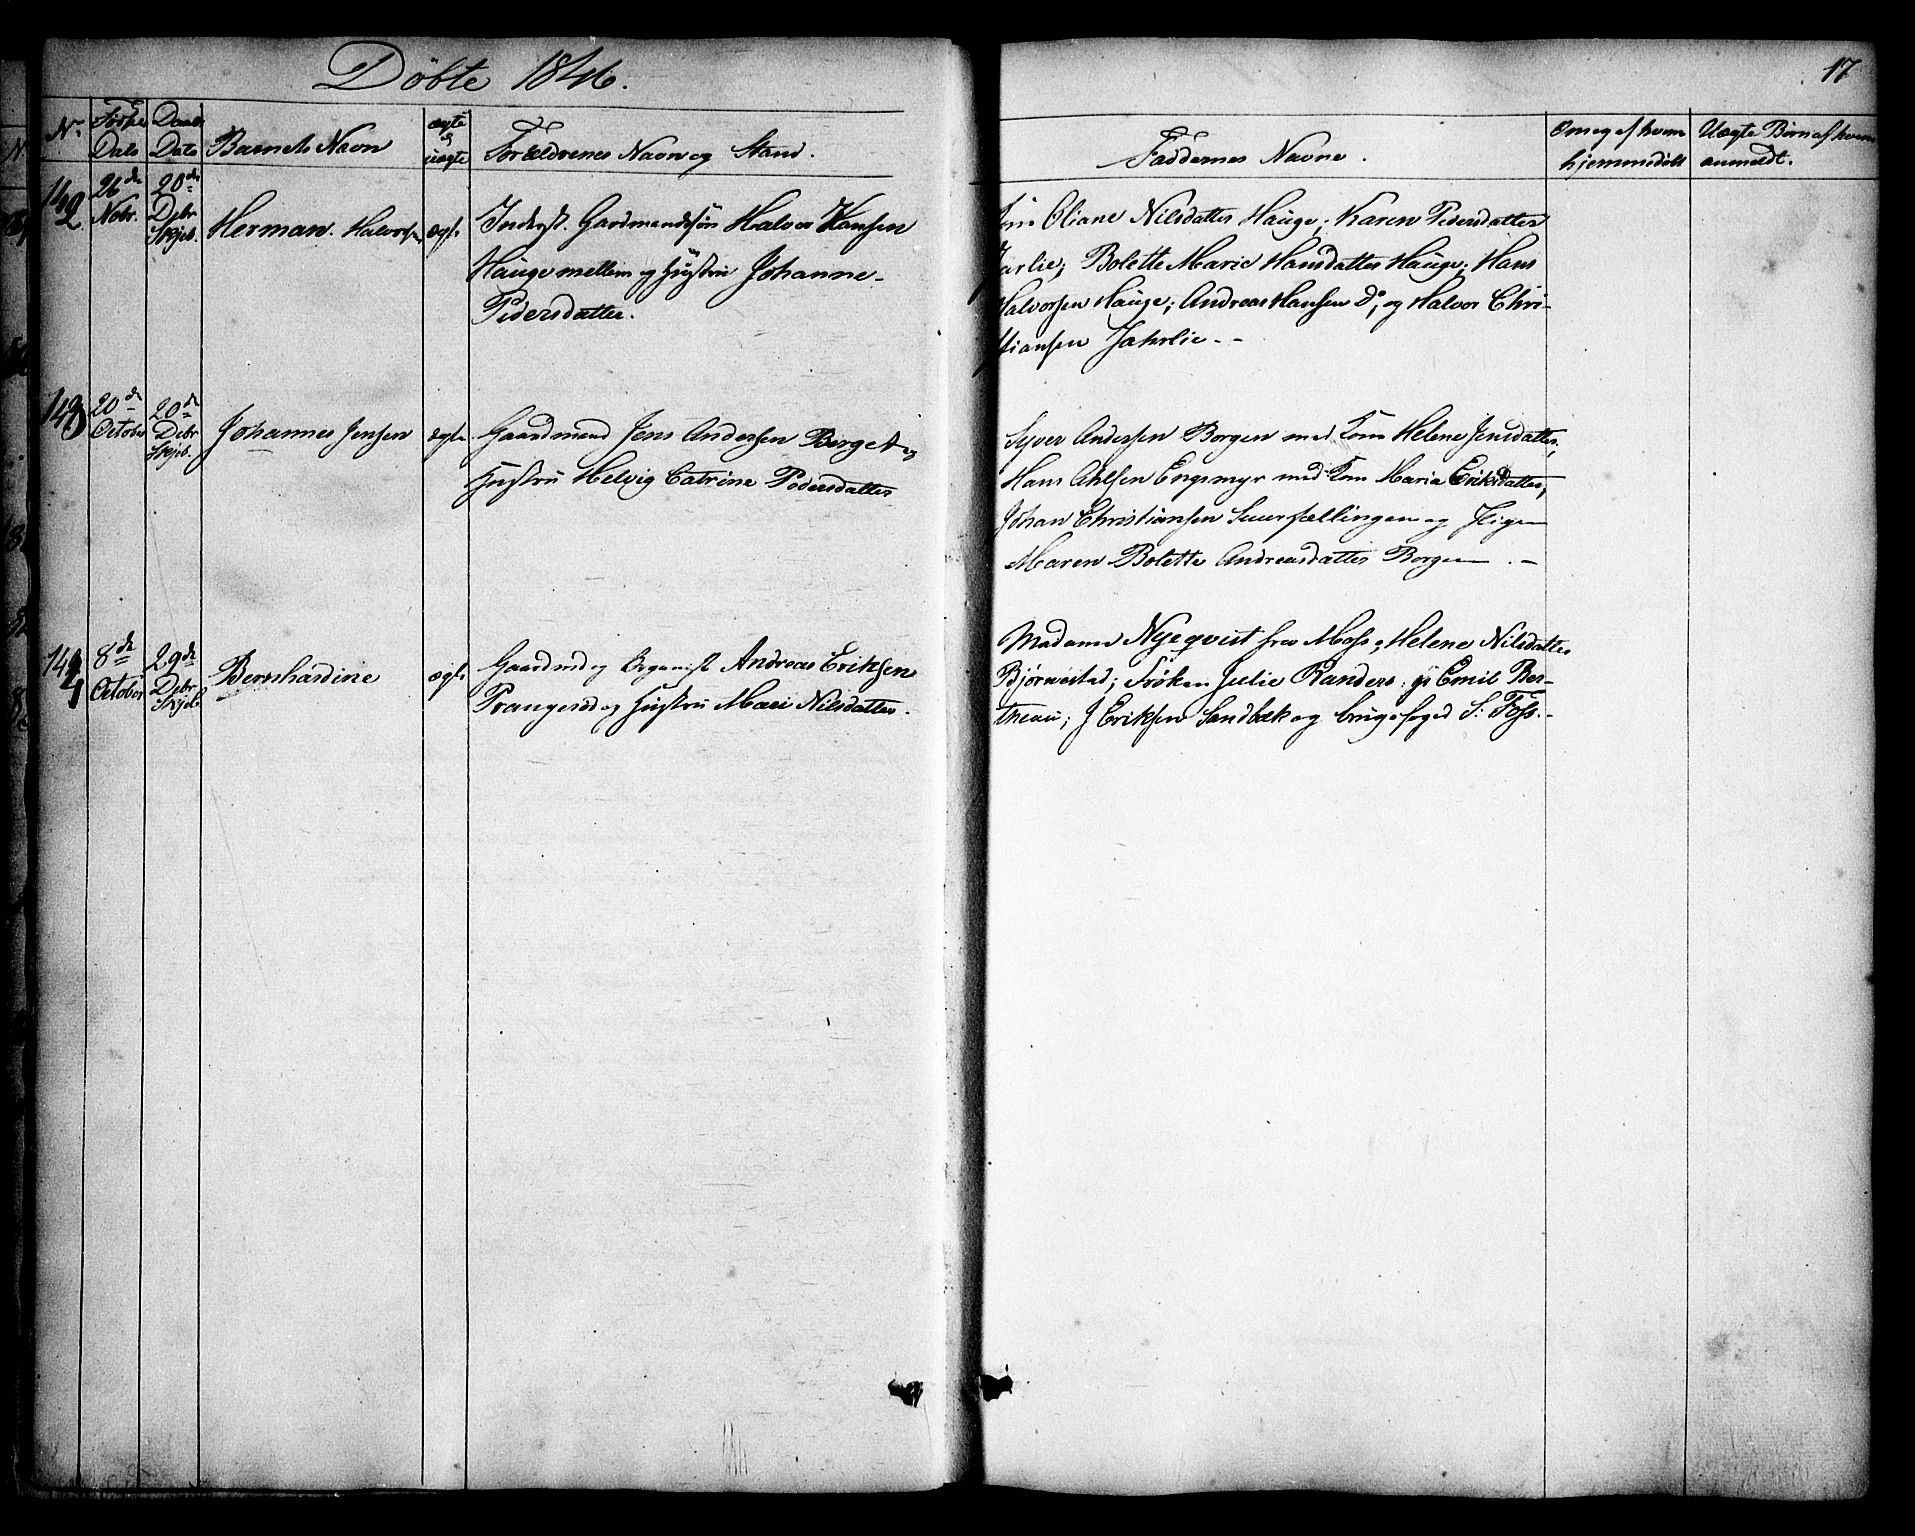 Döbte 1846.
17
No Födse Dato Daabs Dato Barnets Navn ægte & uægte Forældrenes Navn og Stand. Faddernes Navne. Om og af hvem hjemmedöbt Uægte Börn af hvem anmeldt.
142 26de Nobr. 20de Debr Skjeb. Herman. Halvorsen ægte
Inderst. Gardmandssön Halvor Hansen
Hauge mellem og Hustru Johanne
Pedersdatter.
Oliane Nilsdatter Hauge; Karen Pedersdatter
Jarlie; Bolette Marie Hansdatter Hauge; Hans
Halvorsen Hauge; Andreas Hansen Do; og Halvor Chri-
stiansen Jahrlie. -
143 20de October 20de Debr Skjeb. Johannes Jensen ægte
Gaardmand Jens Andersen Berget og
Hustru Helvig Catrine Pedersdatter
Syver Andersen Borgen med Kone Helene Jensdatter,
Hans Ahlsen Engsmyr med Kone Maria Eriksdatter,
Johan Christiansen Suurfællingen og Pigen
Maren Bolette Andreasdatter Borgen. -
144 8de October 29de Debr Skjeb Bernhardine ægte
Gaardmd og Organist Andreas Eriksen
Prangerød og Hustru Mari Nilsdatter.
Madame Nyeqvist fra Moss, Helene Nilsdatter
Bjørnestad; Frøken Julie Randers; Emil Ber-
theau; J Eriksen Sandbæk og brugsfoged S: Foss.